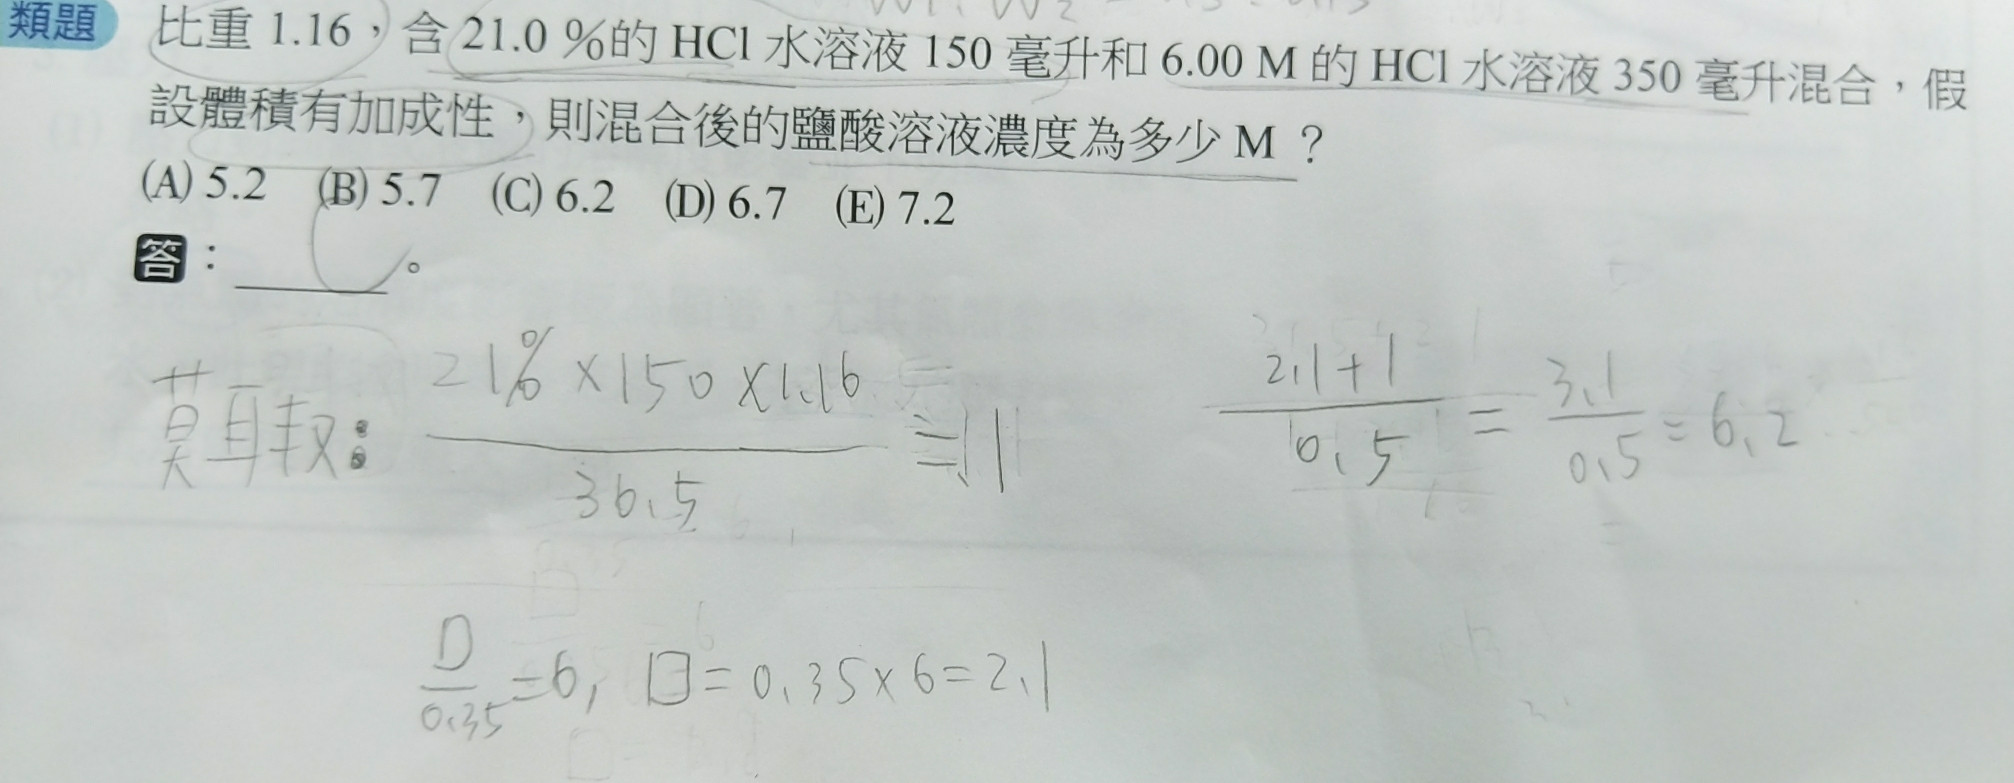 類題 比重 1.16，含 21.0 %的 HCl 水溶液 150 毫升和 6.00 M 的 HCl 水溶液 350 毫升混合，假
設體積有加成性，則混合後的鹽酸溶液濃度為多少 M ？
(A) 5.2 (B) 5.7 (C) 6.2 (D) 6.7 (E) 7.2
答：C。
莫耳数: 21% × 150 × 1.16 / 36.5 ≒ 1
2.1 + 1 / 0.5 = 3.1 / 0.5 = 6.2
□ / 0.35 = 6, □ = 0.35 × 6 = 2.1